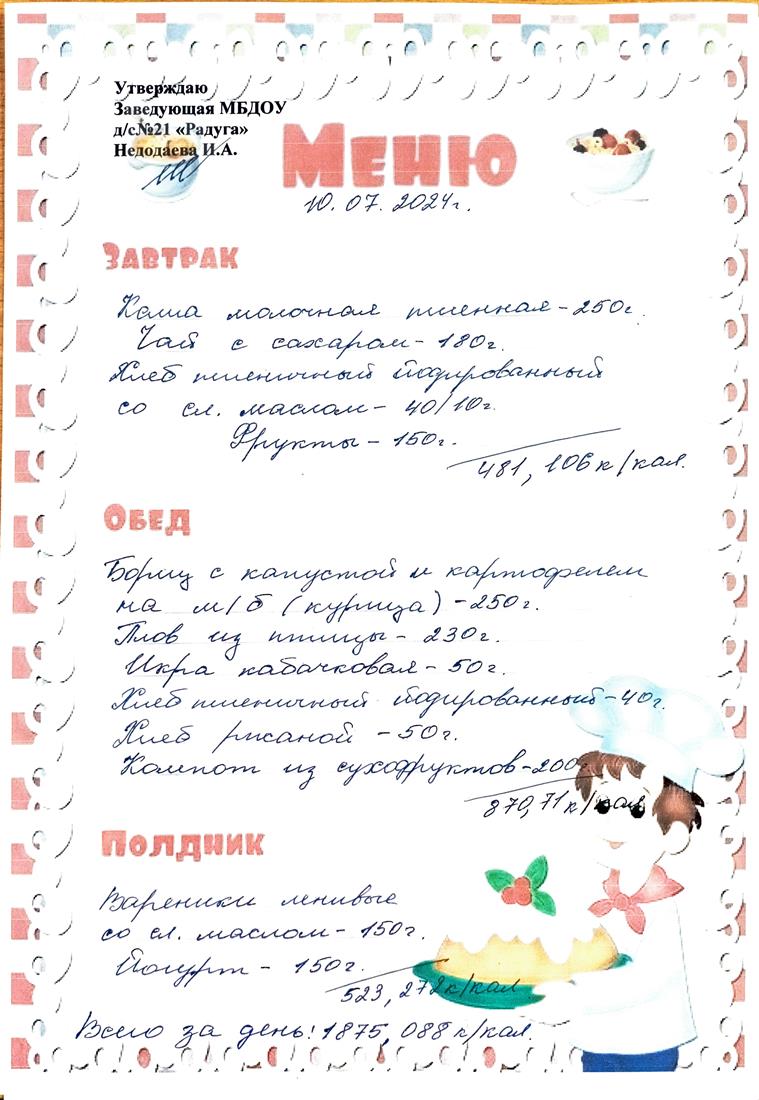 Утверждаю
Заведующая МБДОУ
д/с№21 «Радуга»
Недодаева И.А.
Меню
10.07.2024г.
Завтрак
Каша молочная пшенная-250г.
Чай с сахаром-180г.
Хлеб пшеничный йодированный
со сл. маслом-40/10г.
Фрукты-150г.
481,106 к/кал.
Обед
Борщ с капустой и картофелем
на м/б (курица)-250г.
Плов из птицы-230г.
Икра кабачковая-50г.
Хлеб пшеничный йодированный-40г.
Хлеб ржаной-50г.
Компот из сухофруктов-200г.
870,71 к/кал
Полдник
Вареники ленивые
со сл. маслом-150г.
Йогурт-150г.
523,272 к/кал
Всего за день: 1875,088 к/кал.